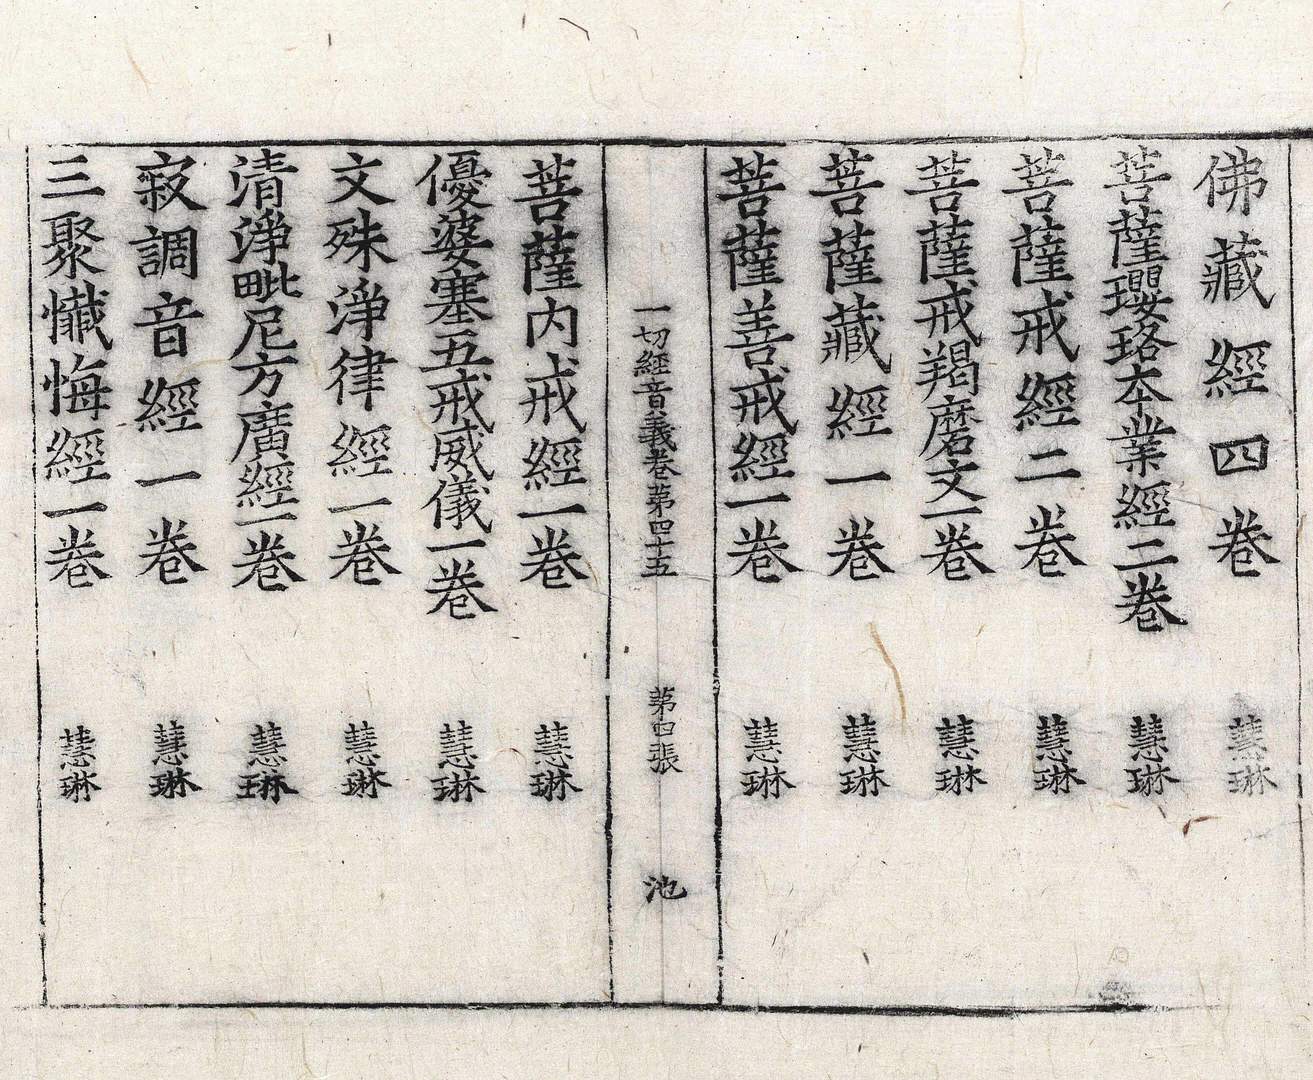 佛藏經四卷 慧琳
菩薩瓔珞本業經二卷 慧琳
菩薩戒經二卷 慧琳
菩薩戒羯磨文一卷 慧琳
菩薩藏經一卷 慧琳
菩薩善戒經一卷 慧琳
一切經音義卷第四十五 第四張 池
菩薩内戒經一卷 慧琳
優婆塞五戒威儀一卷 慧琳
文殊淨律經一卷 慧琳
清淨毗尼方廣經一卷 慧琳
寂調音經一卷 慧琳
三聚懺悔經一卷 慧琳